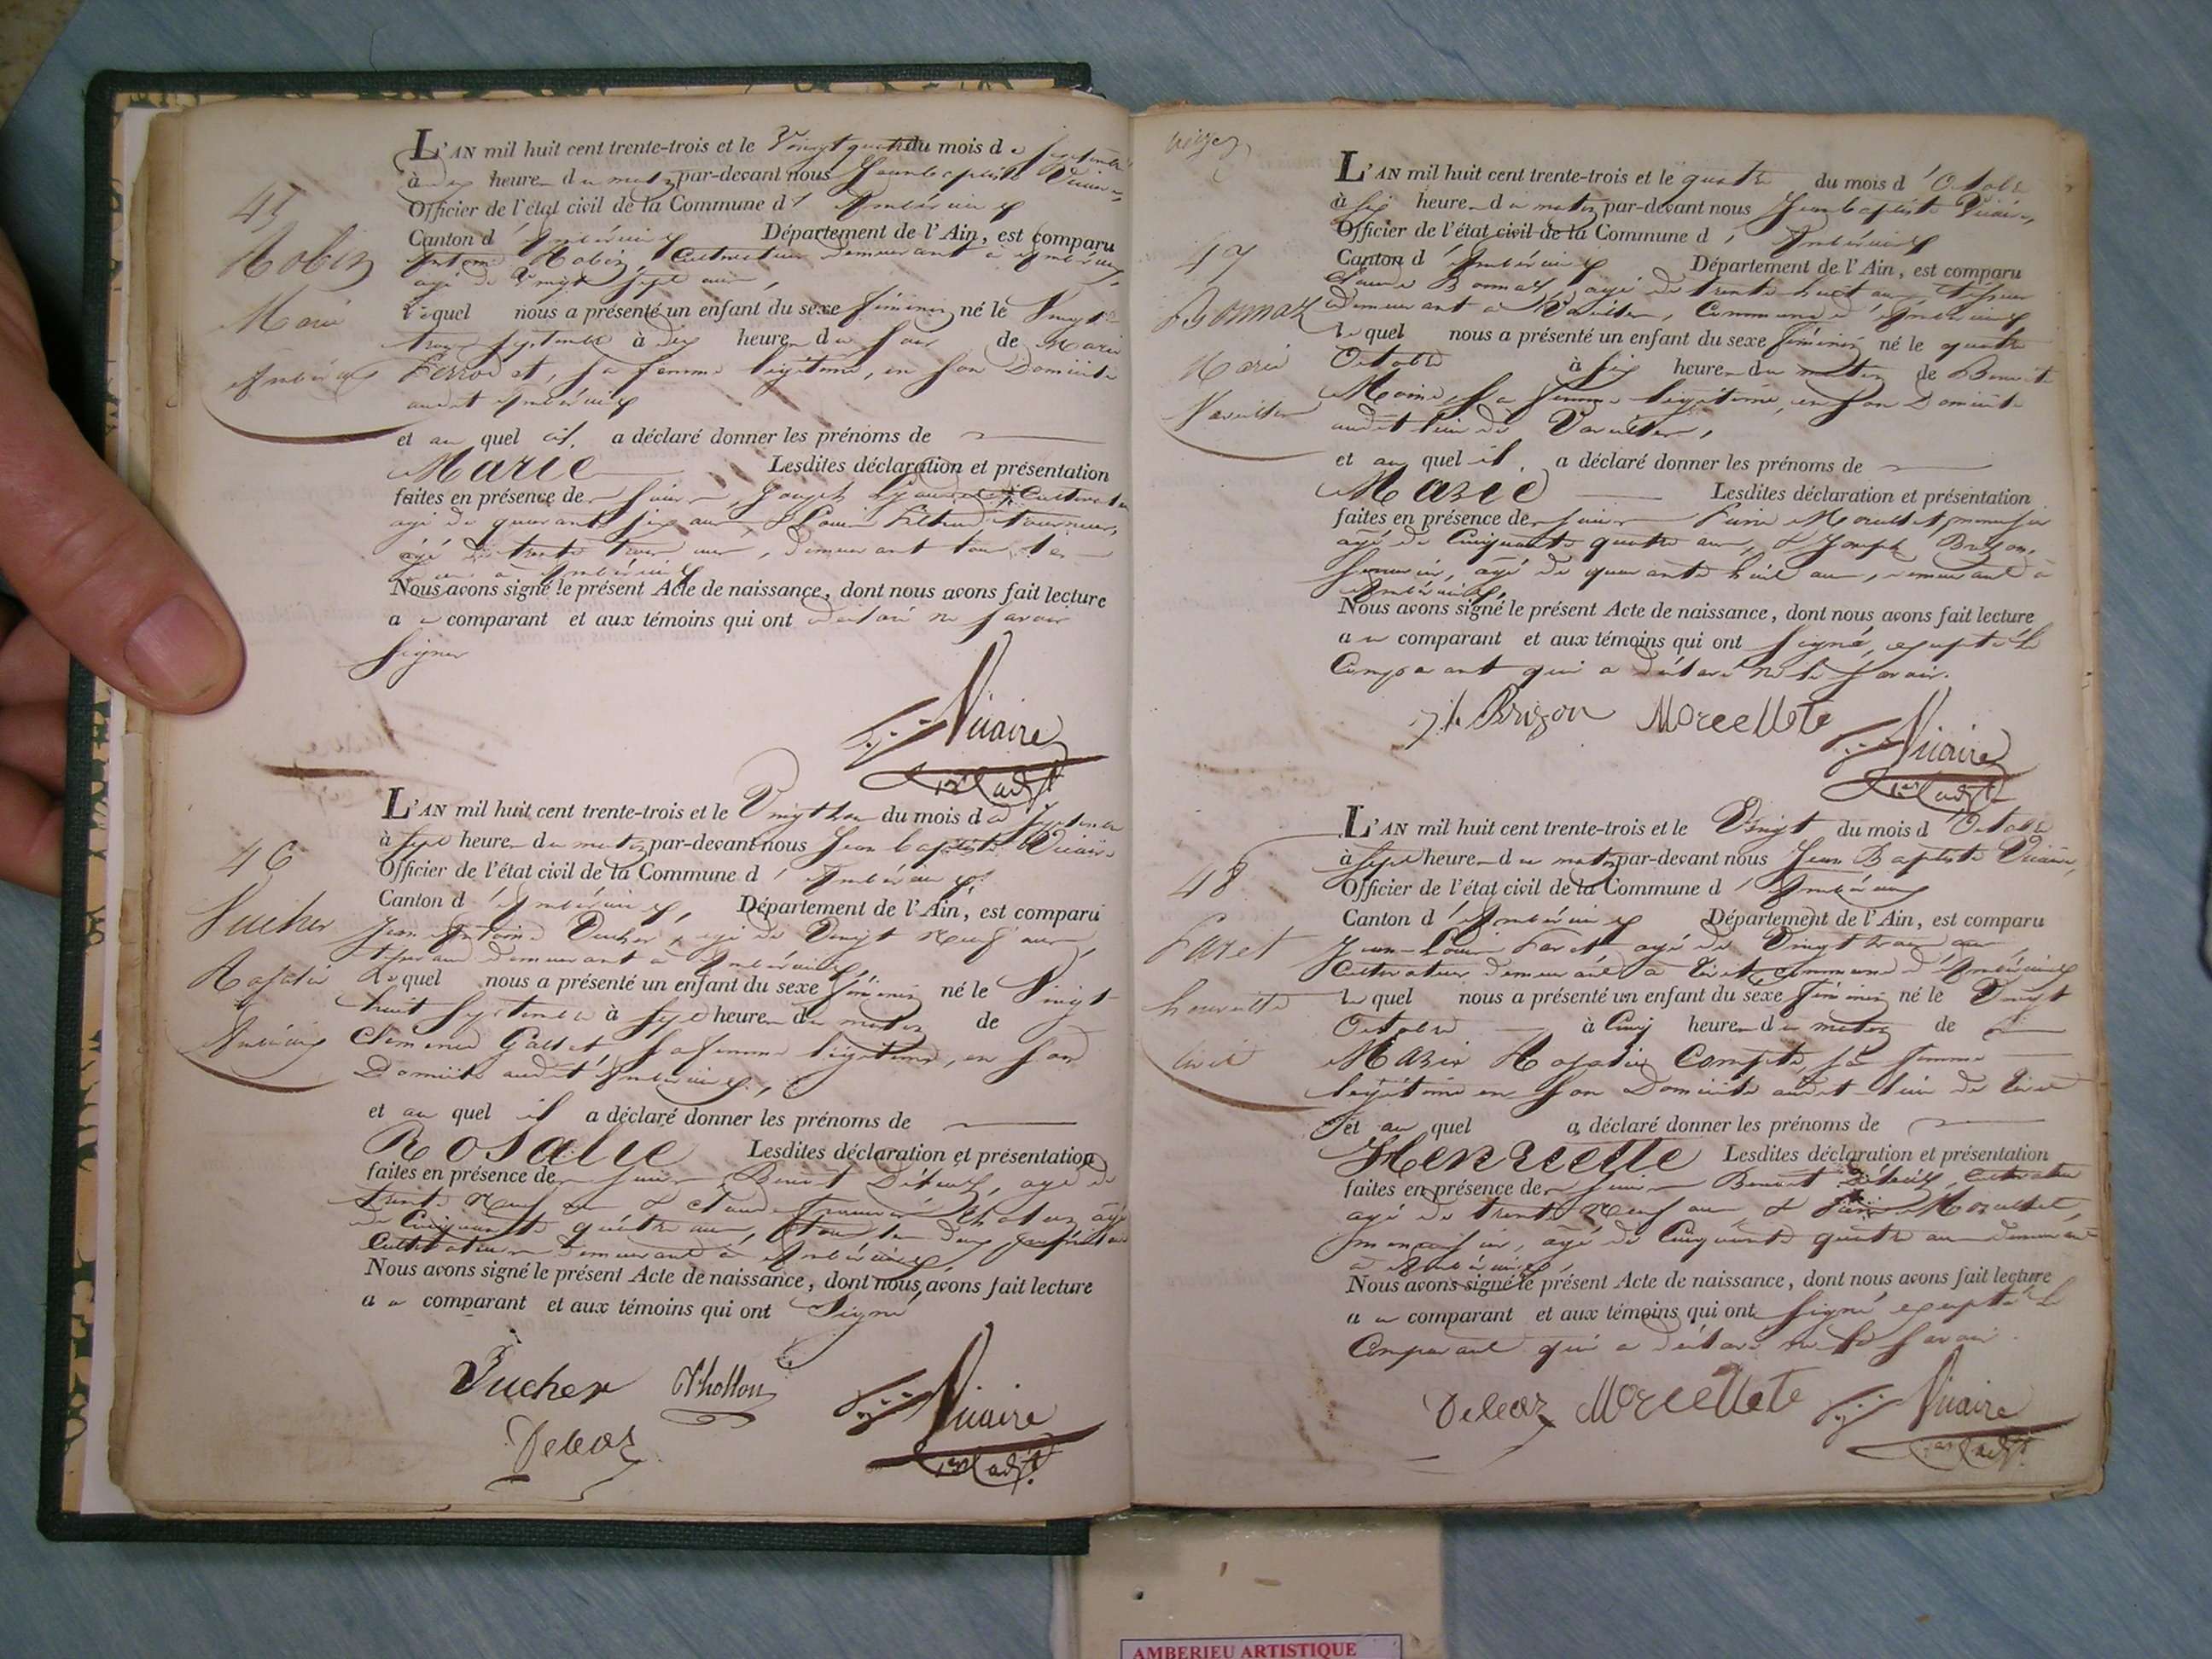 45
Robin
Marie
Ambérieux
L'AN mil huit cent trente-trois et le Vingt quatre du mois de Septembre
à dix heures du matin par-devant nous Jean baptiste Vicaire,
Officier de l'état civil de la Commune d' Ambérieux
Canton d' Ambérieux Département de l'Ain, est comparu
Antoine Robin, Cultivateur demeurant à Ambérieux
agé de Vingt sept ans,
lequel nous a présenté un enfant du sexe féminin né le Vingt
trois septembre à dix heures du soir de Marie
Ferrod et, sa femme légitime, en son Domicile
audit Ambérieux
et au quel il a déclaré donner les prénoms de
Marie Lesdites déclaration et présentation
faites en présence des sieurs Joseph Cultivateur
agé de quarante six ans, & Louis tourneur,
agé de trente trois ans, demeurant tous les
deux à Ambérieux
Nous avons signé le présent Acte de naissance, dont nous avons fait lecture
au comparant et aux témoins qui ont déclaré ne savoir
signer
Vicaire
1er adjt
46
Vucher
Rosalie
Ambérieux
L'AN mil huit cent trente-trois et le Vingt huit du mois de Septembre
à sept heures du matin par-devant nous Jean baptiste Vicaire
Officier de l'état civil de la Commune d' Ambérieux
Canton d' Ambérieux, Département de l'Ain, est comparu
Jean Antoine Vucher, agé de Vingt neuf ans,
tisserand demeurant à Ambérieux,
Lequel nous a présenté un enfant du sexe féminin né le Vingt
huit Septembre à sept heures du matin de
Clémence Gallet sa femme légitime, en son
Domicile audit Ambérieux,
et au quel il a déclaré donner les prénoms de
Rosalie Lesdites déclaration et présentation
faites en présence des sieurs Benoit agé de
trente neuf ans & Claude Tholon agé
de Cinquante quatre ans, tous les deux propriétaires
Cultivateurs demeurant à Ambérieux,
Nous avons signé le présent Acte de naissance, dont nous avons fait lecture
au comparant et aux témoins qui ont Signé
Vucher Thollon
Vicaire
1er adjt
47
Bonnaz
Marie
Vareilles
L'AN mil huit cent trente-trois et le quatre du mois d' Octobre
à six heures du matin par-devant nous Jean baptiste Vicaire,
Officier de l'état civil de la Commune d' Ambérieux
Canton d' Ambérieux Département de l'Ain, est comparu
Claude Bonnaz, agé de trente huit ans tisseur
demeurant à Vareilles, Commune d'Ambérieux
lequel nous a présenté un enfant du sexe féminin né le quatre
Octobre à six heures du matin de Benoite
Moine, sa femme légitime, en son Domicile
audit lieu de Vareilles,
et au quel il a déclaré donner les prénoms de
Marie Lesdites déclaration et présentation
faites en présence des sieurs
agé de Cinquante quatre ans, & Joseph Brizon,
agé de quarante huit ans, demeurant à
Ambérieux,
Nous avons signé le présent Acte de naissance, dont nous avons fait lecture
au comparant et aux témoins qui ont signé, excepté le
Comparant qui a déclaré ne le savoir.
Brizon Morcellete
Vicaire
1er adjt
48
Faret
henriette
tiret
L'AN mil huit cent trente-trois et le Vingt du mois d' Octobre
à sept heures du matin par-devant nous Jean Baptiste Vicaire,
Officier de l'état civil de la Commune d' Ambérieux
Canton d' Ambérieux Département de l'Ain, est comparu
Jean-Louis Faret agé de Vingt trois ans
Cultivateur demeurant à tiret commune d'Ambérieux
lequel nous a présenté un enfant du sexe féminin né le Vingt
Octobre à Cinq heures du matin de
Marie Rosalie Compte, sa femme
légitime en son Domicile audit lieu de tiret
et au quel a déclaré donner les prénoms de
Henriette Lesdites déclaration et présentation
faites en présence des sieurs Benoit Cultivateur
agé de trente neuf ans &
agé de Cinquante quatre ans demeurant
à Ambérieux,
Nous avons signé le présent Acte de naissance, dont nous avons fait lecture
au comparant et aux témoins qui ont signé excepté le
Comparant qui a déclaré ne le savoir.
Morcellete Vicaire
1er adjt
AMBERIEU ARTISTIQUE